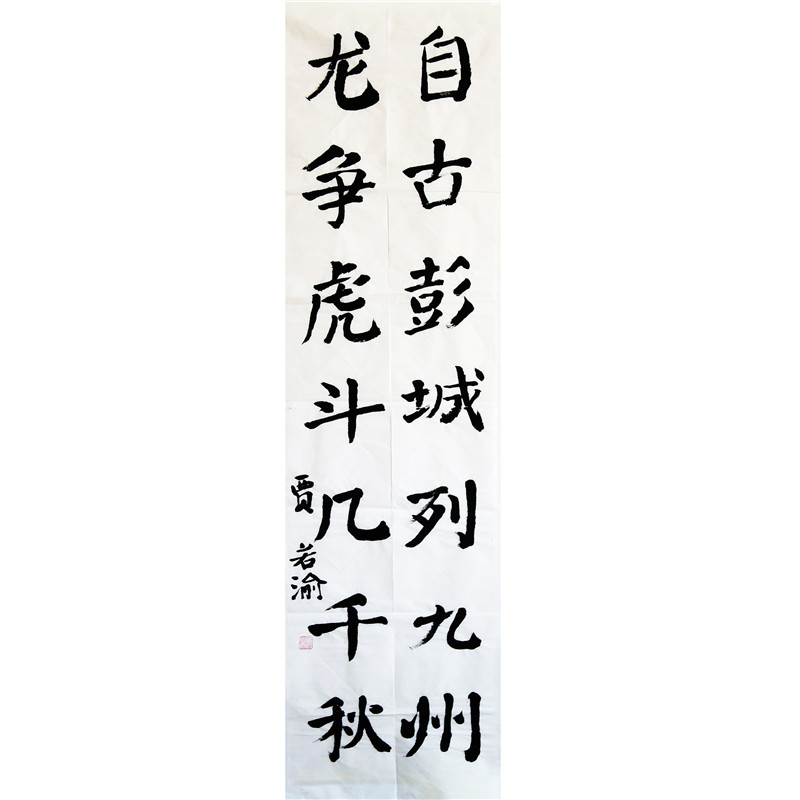 自古彭城列九州
龙争虎斗几千秋
贾若渝